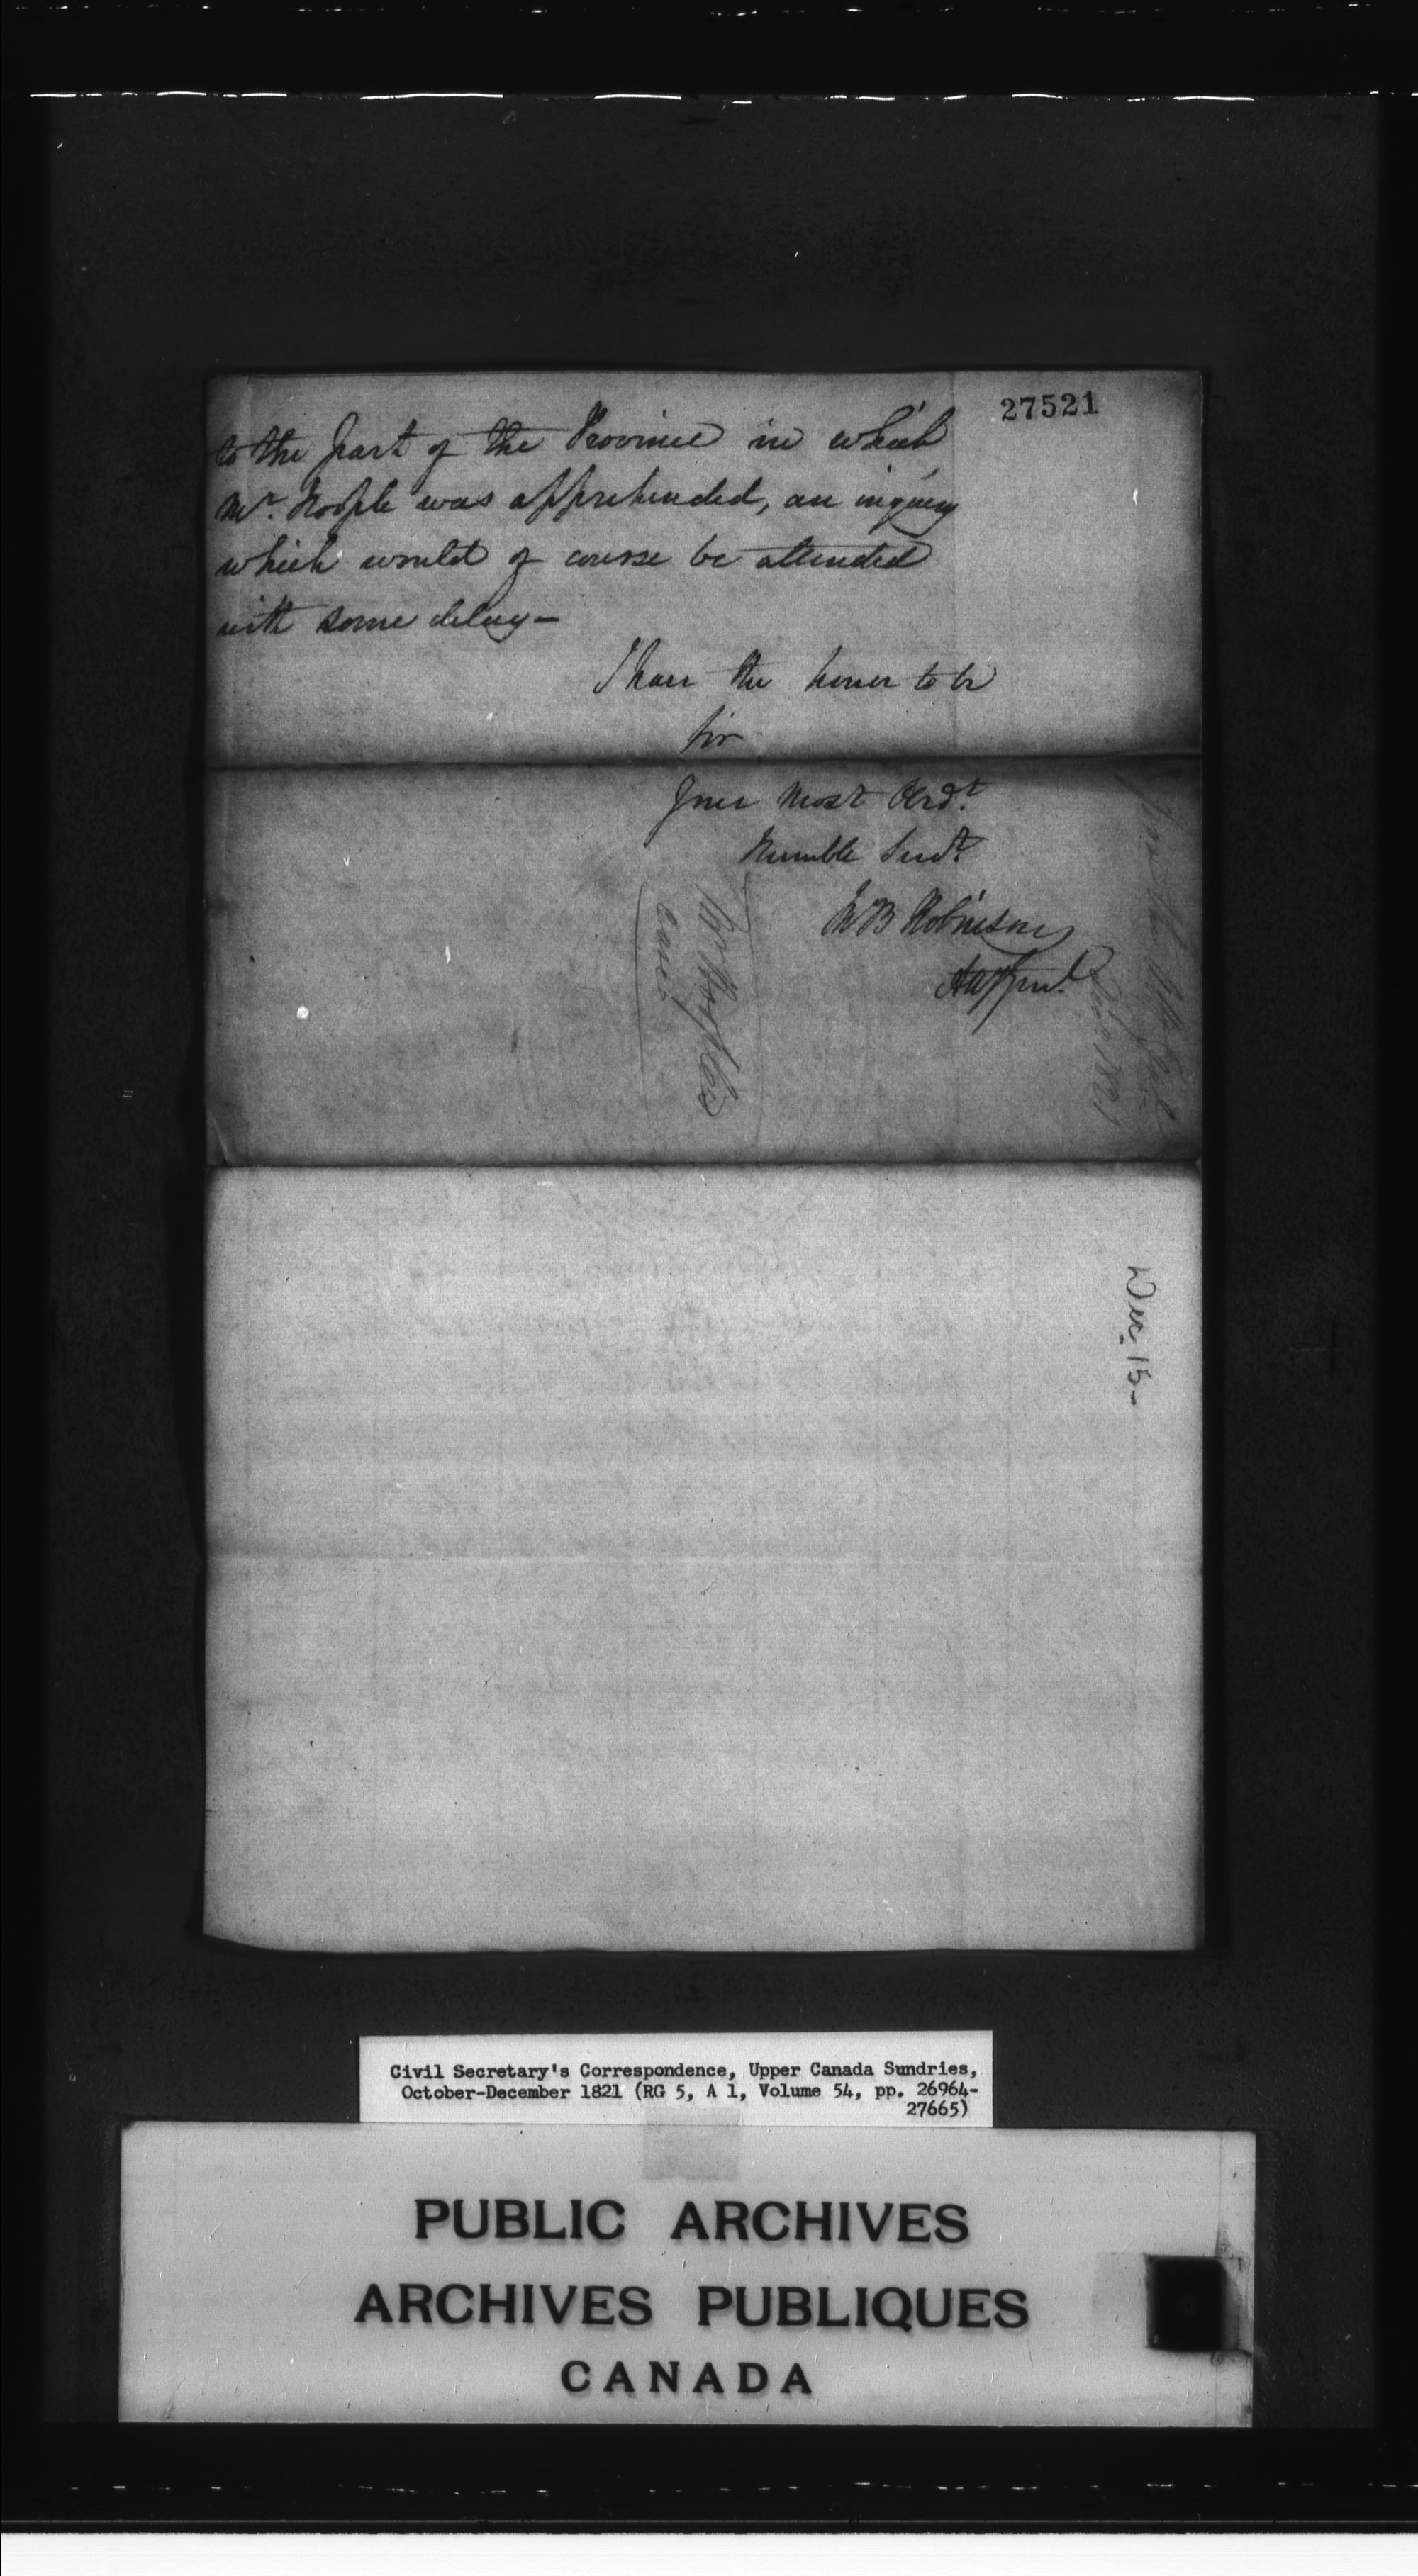 27521
to the part of the Province in which
Mr. Hoople was apprehended, an inquiry
which would of course be attended
with some delay—
I have the honor to be
Sir
Your Most Obdt.
Humble Servt.
W B Robinson
Mr Hoople's
Case
Dec. 15—
Civil Secretary's Correspondence, Upper Canada Sundries,
October-December 1821 (RG 5, A 1, Volume 54, pp. 26964-
27665)
PUBLIC ARCHIVES
ARCHIVES PUBLIQUES
CANADA